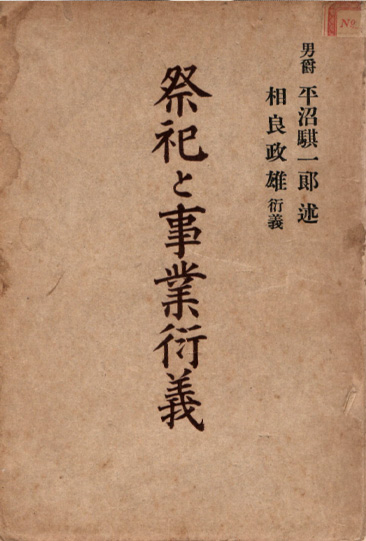 男爵 平沼騏一郞 述
相良政雄 衍義
祭祀と事業衍義
No